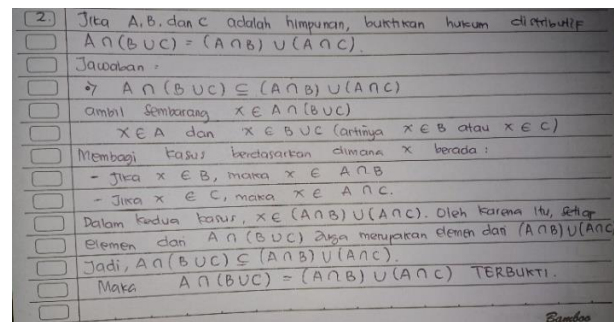 2. Jika A, B, dan C adalah himpunan, buktikan hukum distributif
A ∩ (B ∪ C) = (A ∩ B) ∪ (A ∩ C).
Jawaban :
A ∩ (B ∪ C) ⊆ (A ∩ B) ∪ (A ∩ C)
ambil sembarang x ∈ A ∩ (B ∪ C)
x ∈ A dan x ∈ B ∪ C (artinya x ∈ B atau x ∈ C)
Membagi kasus berdasarkan dimana x berada :
- Jika x ∈ B, maka x ∈ A ∩ B
- Jika x ∈ C, maka x ∈ A ∩ C.
Dalam kedua kasus, x ∈ (A ∩ B) ∪ (A ∩ C). Oleh karena itu, setiap
elemen dari A ∩ (B ∪ C) juga merupakan elemen dari (A ∩ B) ∪ (A ∩ C)
Jadi, A ∩ (B ∪ C) ⊆ (A ∩ B) ∪ (A ∩ C).
Maka A ∩ (B ∪ C) = (A ∩ B) ∪ (A ∩ C) TERBUKTI.
Bamboo